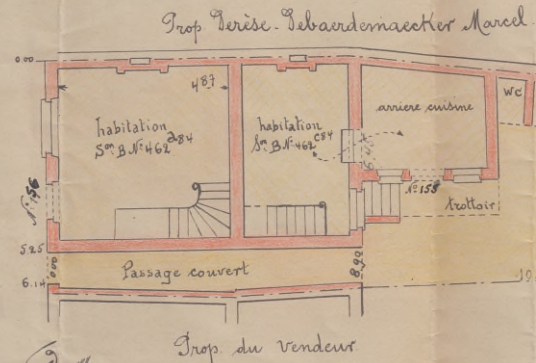 Prop. Derèse-Debaerdemaecker Marcel.
0.00
4.87
habitation
Son B. No 462 a84
habitation
Son B. No 462 c84
arrière cuisine
WC
No 156
No 158
trottoir
5.25
0.00
Passage couvert
8.90
6.14
Prop. du vendeur